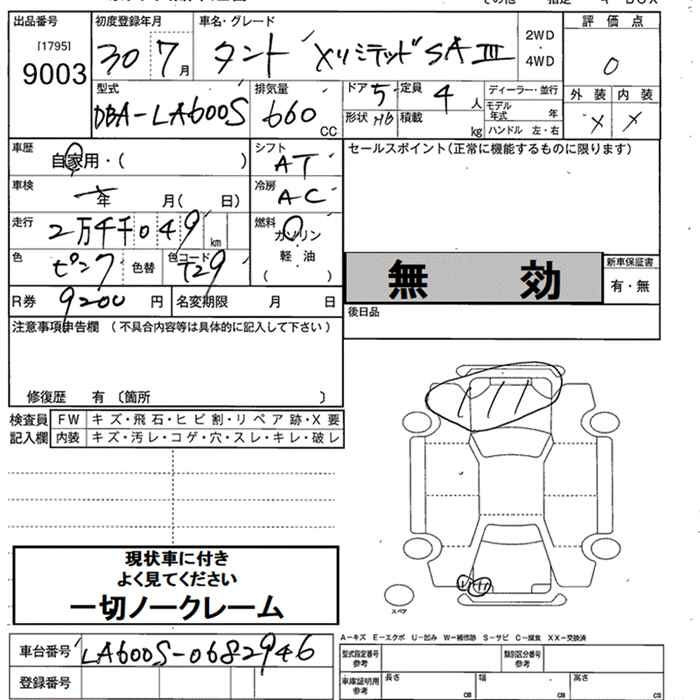 出品番号 [1795] 9003
初度登録年月 30 7月
車名・グレード タント Xリミテッド SAⅢ
2WD・4WD
評価点 0
外装 × 内装 ×
型式 DBA-LA600S
排気量 660 CC
ドア 5 定員 4 人
形状 HB 積載 kg
ディーラー・並行
モデル年式 年
ハンドル 左・右
車歴 自家用・( )
シフト AT
車検 年 月( 日)
冷房 AC
走行 2万4千049 km
燃料 ガソリン・軽油 ( )
色 ピンク 色替 色コード T29
R券 9200 円 名変期限 月 日
セールスポイント(正常に機能するものに限ります)
無効
新車保証書 有・無
後日品
注意事項申告欄 (不具合内容等は具体的に記入して下さい)
修復歴 有 〔箇所 〕
検査員記入欄
FW キズ・飛石・ヒビ割・リペア跡・X要
内装 キズ・汚レ・コゲ・穴・スレ・キレ・破レ
現状車に付き
よく見てください
一切ノークレーム
スペア
車台番号 LA600S-0682946
登録番号
A-キズ E-エクボ U-凹み W-補修跡 S-サビ C-腐食 XX-交換済
型式指定番号 参考 類別区分番号 参考
車庫証明用 参考 長さ cm 幅 cm 高さ cm